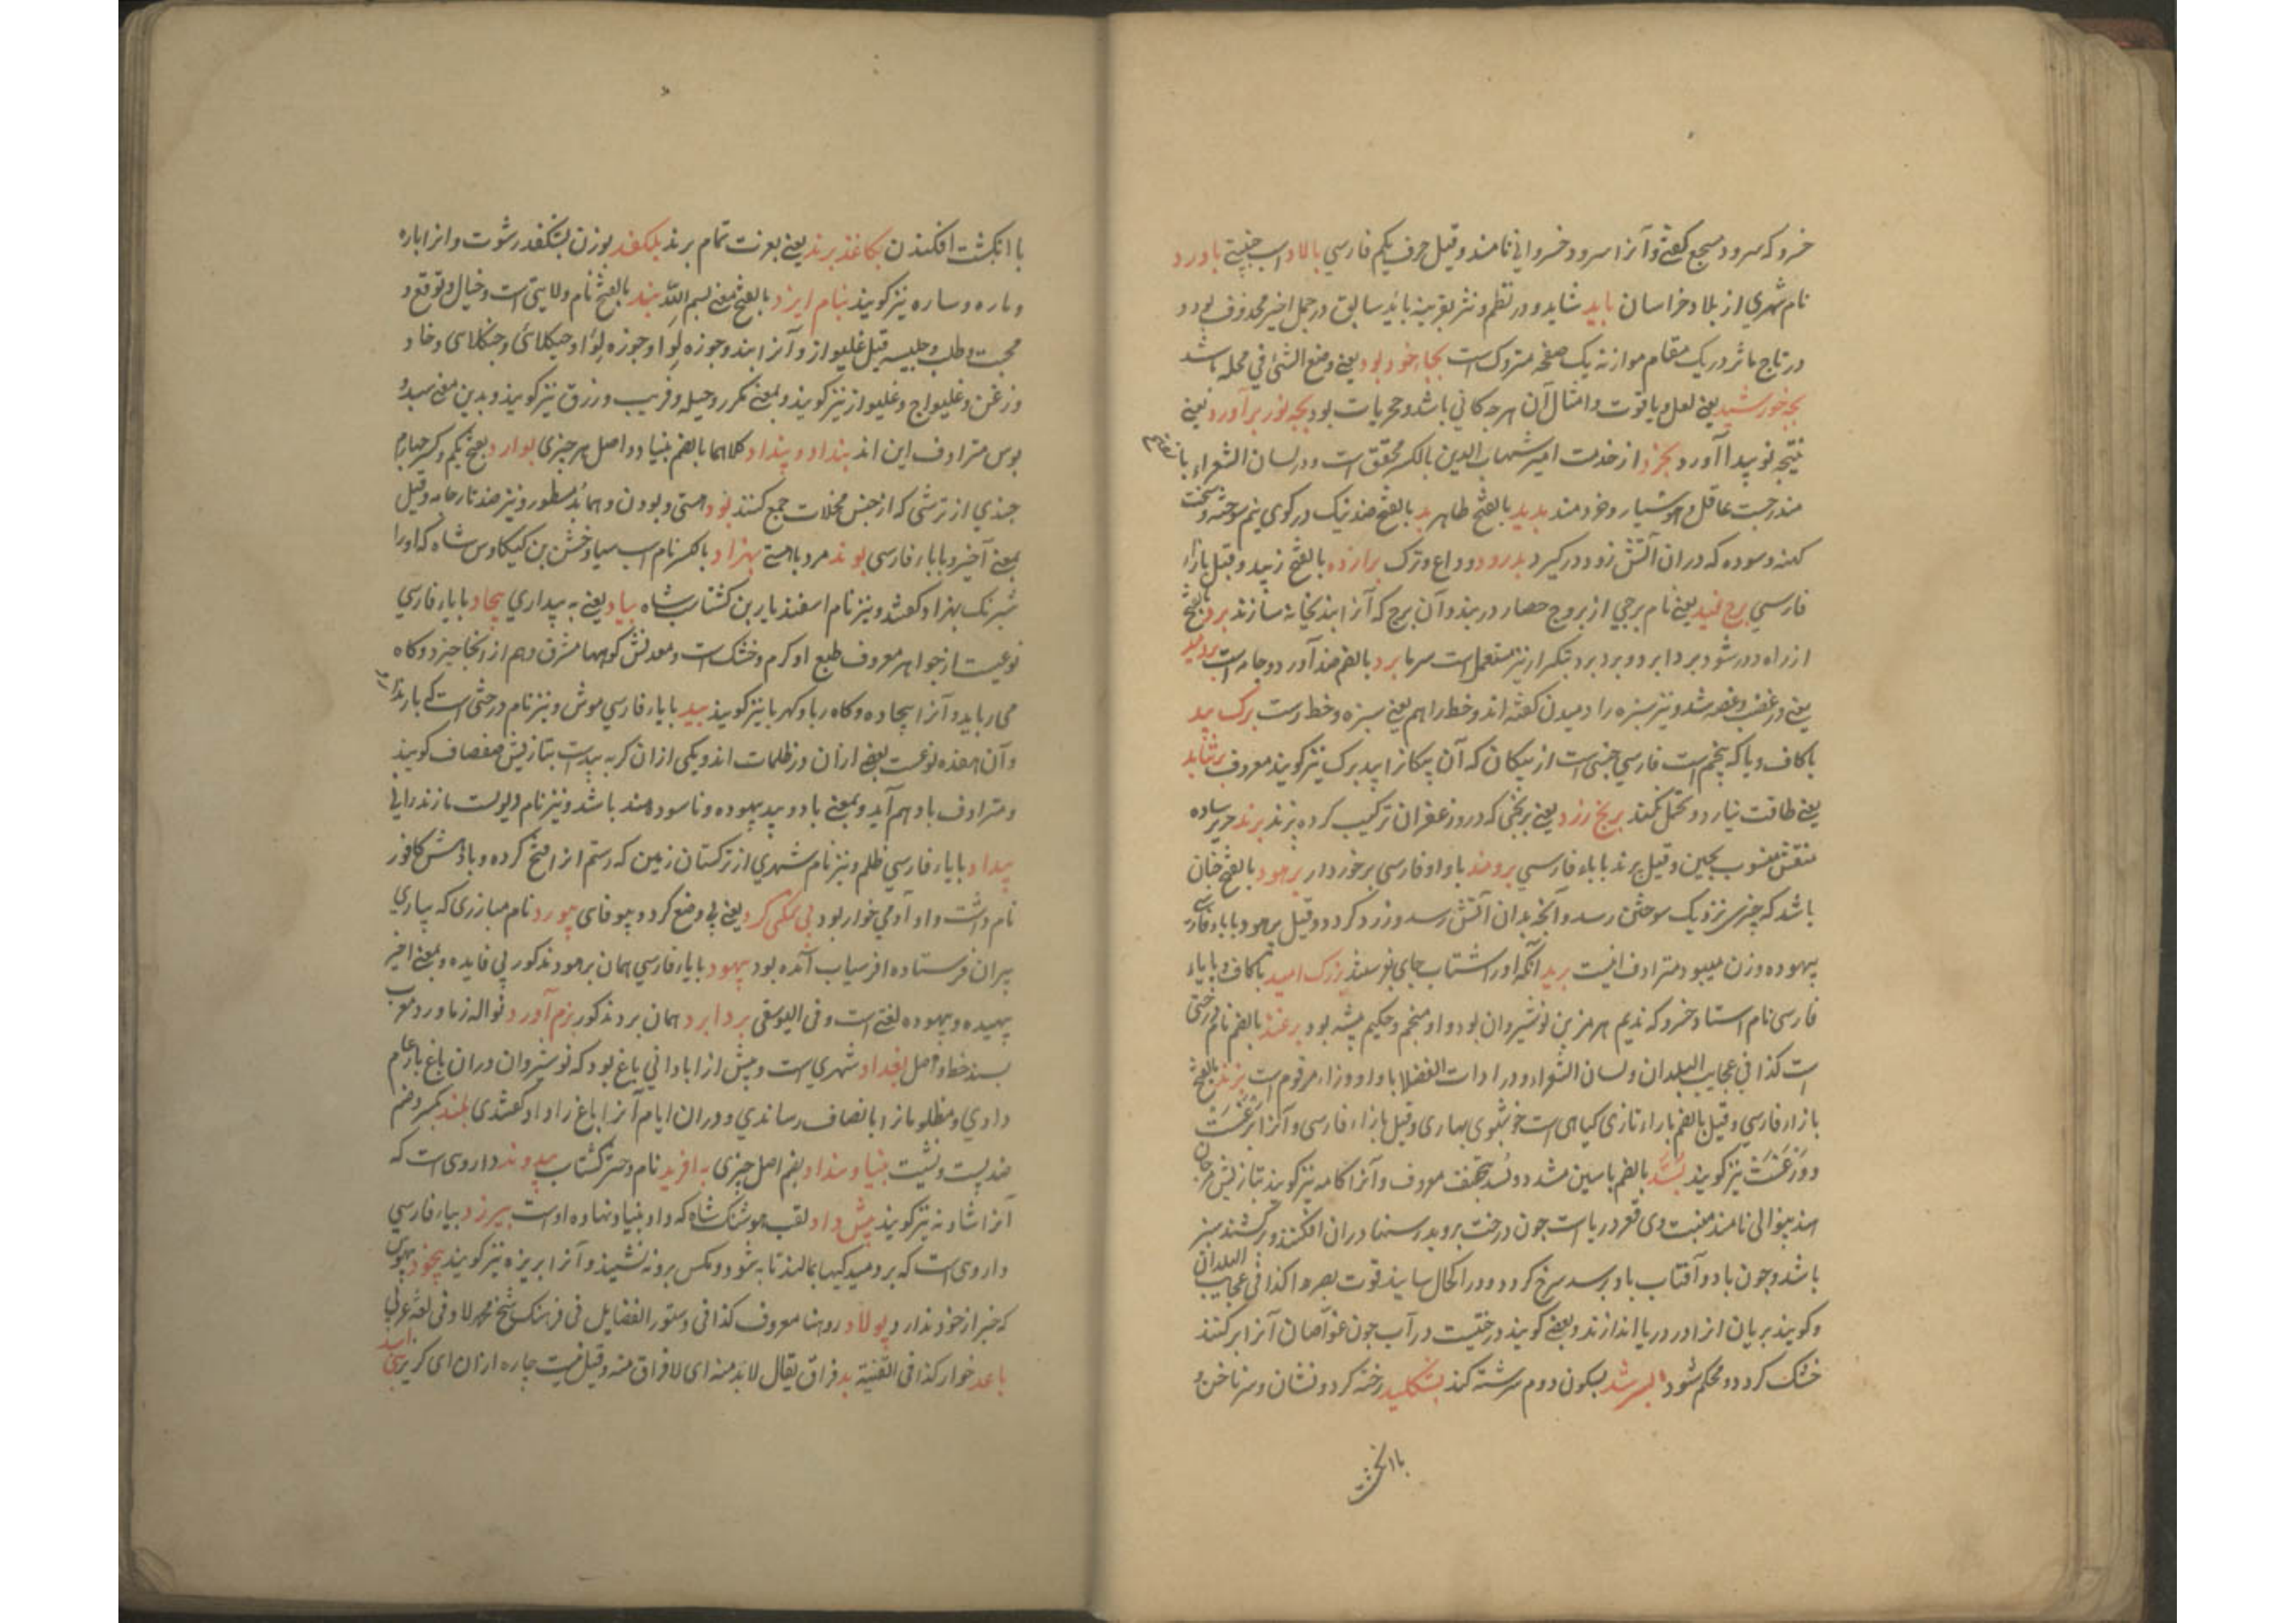 خسرو که سرود مسجع گفتی و آنرا سرود خسروانی نامند و قیل حرف یکم فارسی بالاد اسب جنیبتی باورد
نام شهری از بلاد خراسان باید شاید و در نظم و نثر بقرینه باید سابق در جمل اخیر محذوف بود و
در تاج ماثر در یک مقام موازنه یک صفحه متروکست بجاء خود بود یعنی وضع الشئ فی محله باشد
بچه خورشید یعنی لعل و یاقوت و امثال آن هرچه کانی باشد و حجریات بود بچه نور برآورد یعنی
نتیجه نو پیدا آورد بخرد از خدمت امیر شهاب الدین بالکسر محقق است و در لسان الشعراء با
مندرجست عاقل و هوشیار و خردمند بدید بالفتح ظاهر بد بالفتح ضد نیک در کوی نیم سوخته و سخت
کهنه و سوده که دران آتش زود در گیرد بدرود وداع و ترک برازده بالفتح زیبد و قیل بازاء
فارسی برج لید یعنی نام برجی از بروج حصار در بند و آن برج که آنرا بندیخانه سازند برد بالفتح
از راه دور شو و برد ابرد و برد برد بتکرار نیز مستعمل است سرما برد بالضم ضد آورد و جامه است
یعنی در غضب و غصه شد و نیز سبزه را دمیدن گفته اند و خط را هم یعنی سبزه و خط رست برک بید
با کاف و یا که پنجم است فارسی جنسی است از پیکان که آن پیکانرا بید برک نیز گویند معروف برنتابد
یعنی طاقت نیارد و تحمل نکند برنج زرد یعنی برنجی که در وزعفران ترکیب کرده پزند برند حریر ساده
منقش منسوب بچین و قیل پرند باباء فارسی برومند با واو فارسی برخوردار برهود بالفتح چنان
باشد که چیزی نزدیک سوختن رسد و آنچه بدان آتش رسد و زرد گردد و قیل برهود باباء فارسی
بیهوده وزن میبود مترادف اینست برید آنکه او را شتاب جای بفرستند بزرک امید با کاف و یاء
فارسی نام استاد خسرو که ندیم هرمز بن نوشیروان بود و او منجم و حکیم پیشه بود برغند بالضم نام درختی
است کذا فی عجایب البلدان و لسان الشعراء و در ادات الفضلا با واو و زاء مرقوم است بزند بالفتح
بازاء فارسی و قیل بالضم باراء تازی کیاهی است خوشبوی بهاری و قیل بازاء فارسی و آنرا برغست
و وزغست نیز گویند بسد بالضم با سین مشدد و بسد تخفیف معروف و آنرا کامه نیز گویند بتازیش مرجان
منبت وی قعر دریاست چون درخت بروید رسنها دران افکنند و برکشند سبز
باشد و چون باد و آفتاب باو رسد سرخ گردد و در الحال ساید قوت بصر را کذا فی عجایب البلدان
و گویند بریان انرا در دریا اندازند و بعضی گویند درختیست در آب چون غواصان آنرا برکنند
خشک گردد و محکم شود بسرشد بسکون دوم سرشته کند بشکلید رخنه کرد و نشان و سر ناخن و
با انکشت
با انکشت افکندن بکاغذ برند یعنی بعزت تمام برند بلکفد بوزن بشکفد رشوت و انرا باره
و ماره و ساره نیز گویند بنام ایزد بالفتح بمعنی بسم الله بند بالفتح نام ولایتی است و خیال و توقع و
محبت و طلب و حلیه قیل غلیواز و آنرا بند و جوزه لوا و جوزه لوا و جنکلائی و جنکلاسی و خاد و
و زغن و غلیواج و غلیواز نیز گویند و بمعنی مکر و حیله و فریب و زرق نیز گویند و بدین معنی سید و
بوس مترادف این اند بنداد و پنداد کلاهما بالضم بنیاد و اصل هر چیزی بوارد بفتح یکم و کسر چهارم
چندی از ترشی که از جنس مخللات جمع کنند بود هستی و بودن و هماند مسطور و نیز ضد تار جامه و قیل
بمعنی آخیر و باباء فارسی بوند مرد باهستی بهزاد بالکسر نام اسپ سیاوخش بن کیکاوس شاه که او را
شبرنک بهزاد گفتند و نیز نام اسفندیار بن کشتاسب شاه بیاد یعنی به بیداری بیجاد با یاء فارسی
نوعیست از جواهر معروف طبع او کرم و خشک است و معدنش کوهها مشرق و هم از انجا خیزد و کاه
می رباید و آنرا بیجاده و کاه ربا و کهربا نیز گویند بید با یاء فارسی موش و نیز نام درختی است که بار ندارد
و آن هفده نوعست بعضی ازان در ظلمات اند و یکی ازان کربه بیدست بتازیش صفصاف گویند
و مترادف باد هم آید و بمعنی باد و بید بیهوده و ناسودمند باشد و نیز نام دیوست مازندرانی
بیداد با یاء فارسی ظلم و نیز نام شهری از ترکستان زمین که رستم انرا فتح کرده و بادشش کافور
نام داشت و او آدمی خوار بود بی نمکی کرد یعنی بی وضع کرد و بیوفای بیورد نام مبارزی که بیاری
پیران فرستاده افراسیاب آمده بود بیهود با یاء فارسی همان برهود مذکور بی فایده و بمعنی اخیر
بیهیده و بیهوده لغتی است و فی الیوسفی بردابرد همان برد مذکور بزم آورد نواله زماورد معرب
شهریست و پیش از آبادانی باغ بود که نوشروان دران باغ بار عام
دادی و مظلومانرا بانصاف رساندی و دران ایام آنرا باغ داد گفتندی بلند بکسر و ضم
ضد پست و پشت بنیاد و بنداد بضم اصل چیزی به آفرید نام دختر کشتاسب بیدوند داروی است که
آنرا شادنه نیز گویند پیش داد لقب هوشنک شاه که داد بنیاد نهاده اوست بیرزد بیاء فارسی
داروی است که بر و میدکیها بمالند تا به شود و مکس برو نه نشیند و آنرا بریزه نیز گویند بیخود بیهوش
که خبر از خود ندارد پولاد روهنا معروف کذا فی دستور الفضایل فی فرهنک شیخ محمد لاد فی لغة عربی
باعد خوار کذا فی القنیة بد فراق یقال لابد منه ای لا فراق منه و قیل نیست چاره ازان ای گریز